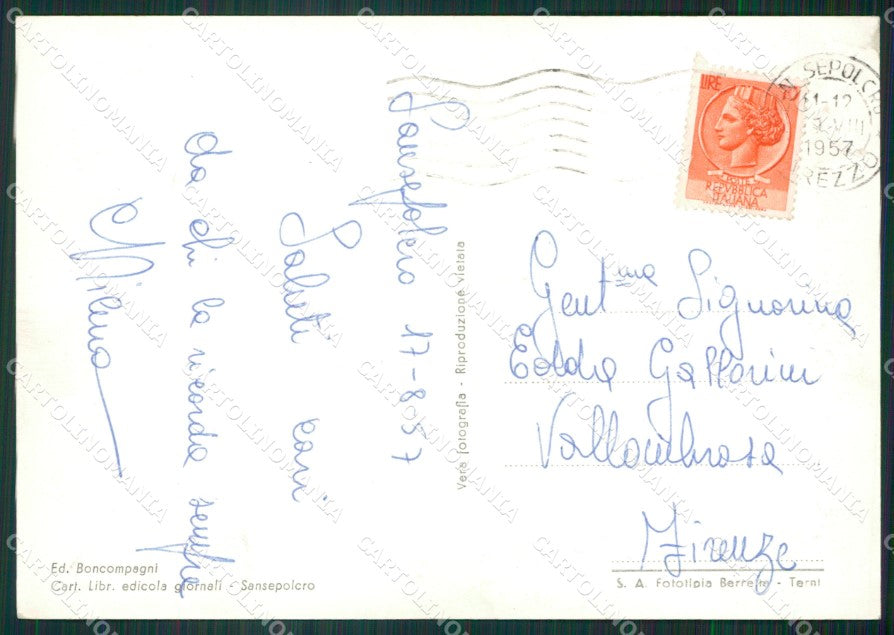 Sansepolcro 17-8-57
Saluti cari
da chi la ricorda sempre
Milena
Vera fotografia - Riproduzione vietata
Ed. Boncompagni
Cart. Libr. edicola giornali - Sansepolcro
LIRE
POSTE
REPVBBLICA
ITALIANA
SEPOLCRO
11-12
VIII
1957
AREZZO
Gent.ma Signorina
Edda
Vallombrosa
Firenze
S. A. Fototipia Berretta - Terni
CARTOLINOMANIA